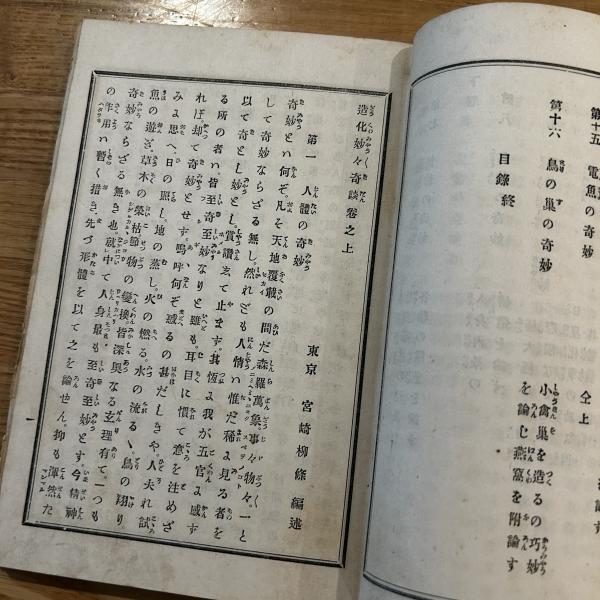 第十五 電魚の奇妙
仝上
第十六 鳥の巣の奇妙
小禽巣を造るの巧妙
を論じ燕窩を附論す
目錄終
造化妙々奇談卷之上
東京 宮崎柳條 編述
第一 人體の奇妙
奇妙とハ何ぞ。凡そ天地覆載の間だ森羅萬象事々物々。一と
して奇妙ならざる無し。然れども人情ハ惟だ稀よ見る者を
以て奇とし妙とし。賞讚玄て止ます。其恆よ我が五官よ感す
る所の者ハ。皆至奇至妙なりと雖も。耳目に慣て意を注めざ
れバ。却て奇妙とせず。嗚呼何ぞ惑るの甚だしきや。人夫れ試
みよ思へ。日の照し。地の蒸し。火の燃る。水の流るゝ鳥の翔り
魚の遊ぎ。草木の榮枯節物の變換。皆深奥なる玄理有て。一つも
奇妙ならざる無き也。就中て人身最も至奇至妙とす。今精神
の作用ハ暫く措き。先づ形體を以て之を論せん。抑も渾然た
一